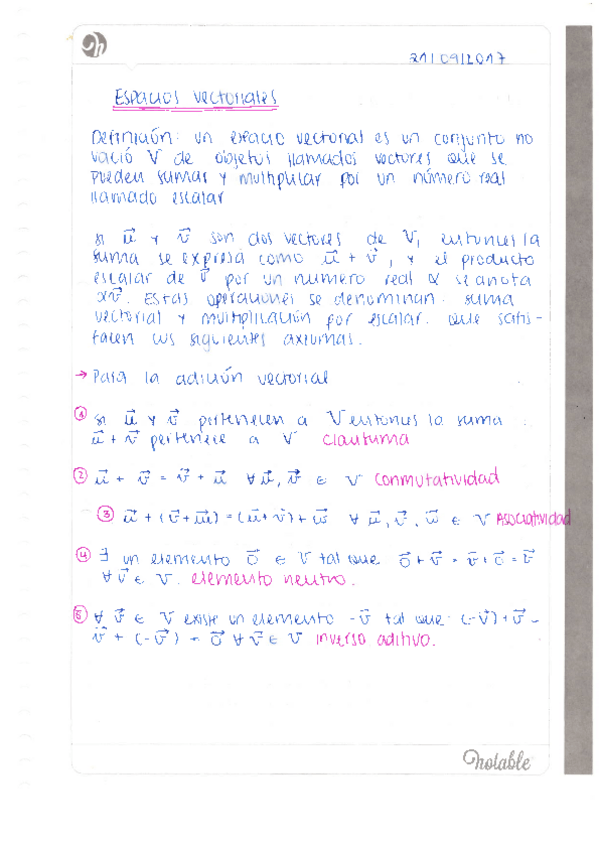 21/09/2017
Espacios vectoriales
Definición: un espacio vectorial es un conjunto no
vació V de objetos llamados vectores que se
pueden sumar y multiplicar por un número real
llamado escalar
si u⃗ y v⃗ son dos vectores de V, entonces la
suma se expresa como u⃗ + v⃗, y el producto
escalar de v⃗ por un numero real α se anota
αv⃗. Estas operaciones se denominan: suma
vectorial y multiplicación por escalar. que satis-
facen los siguientes axiomas.
→ Para la adición vectorial
① si u⃗ y v⃗ pertenecen a V entonces la suma
u⃗ + v⃗ pertenece a V clausura
② u⃗ + v⃗ = v⃗ + u⃗ ∀ u⃗, v⃗ ∈ V conmutatividad
③ u⃗ + (v⃗ + w⃗) = (u⃗ + v⃗) + w⃗ ∀ u⃗, v⃗, w⃗ ∈ V Asociatividad
④ ∃ un elemento 0⃗ ∈ V tal que 0⃗ + v⃗ = v⃗ + 0⃗ = v⃗
∀ v⃗ ∈ V. elemento neutro.
⑤ ∀ v⃗ ∈ V existe un elemento -v⃗ tal que: (-v⃗) + v⃗ =
v⃗ + (-v⃗) = 0⃗ ∀ v⃗ ∈ V inverso aditivo.
notable